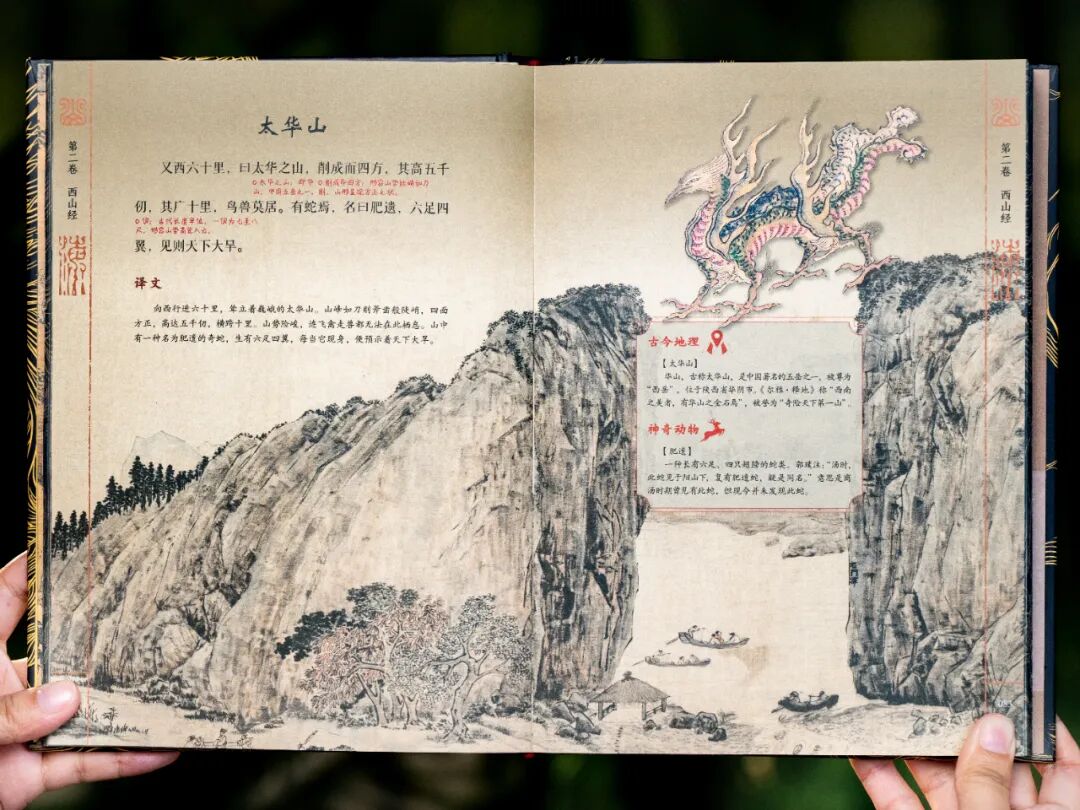 第二卷 西山经
太华山
又西六十里，曰太华之山，削成而四方，其高五千
仞，其广十里，鸟兽莫居。有蛇焉，名曰肥遗，六足四
翼，见则天下大旱。
译文
向西行进六十里，耸立着巍峨的太华山。山峰如刀削斧凿般陡峭，四面
方正，高达五千仞，横跨十里。山势险峻，连飞禽走兽都无法在此栖息。山中
有一种名为肥遗的奇蛇，生有六足四翼，每当它现身，便预示着天下大旱。
第二卷 西山经
古今地理
【太华山】
华山，古称太华山，是中国著名的五岳之一，被尊为
“西岳”，位于陕西省华阴市，《尔雅·释地》称“西南
之美者，有华山之金石焉”，被誉为“奇险天下第一山”。
神奇动物
【肥遗】
一种长有六足、四只翅膀的蛇类。郭璞注：“汤时，
此蛇见于阳山下，复有肥遗蛇，疑是同名。”意思是商
汤时期曾见有此蛇，但现今并未发现此蛇。